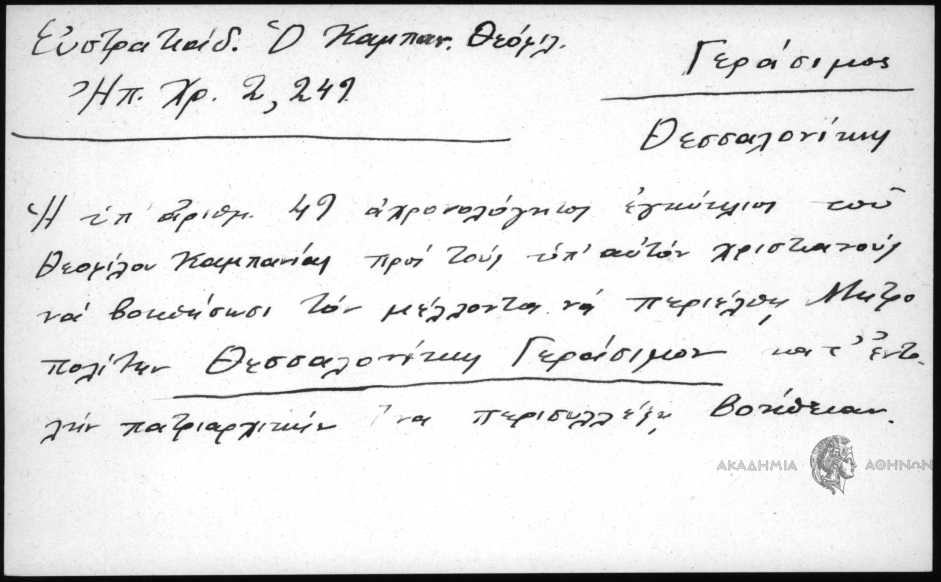 Εὐστρατιάδ. Ὁ Καμπαν. Θεόφιλ.
Ἠπ. Χρ. 2, 249
Γεράσιμος
Θεσσαλονίκης
Ἡ ὑπ' ἀριθμ. 49 ἀχρονολόγητος ἐγκύκλιος τοῦ
Θεοφίλου Καμπανίας πρὸς τοὺς ὑπ' αὐτὸν χριστιανοὺς
νὰ βοηθήσωσι τὸν μέλλοντα νὰ περιέλθῃ Μητρο
πολίτην Θεσσαλονίκης Γεράσιμον κατ' ἐντο
λὴν πατριαρχικὴν ἵνα περισυλλέξῃ βοήθειαν.
ΑΚΑΔΗΜΙΑ ΑΘΗΝΩΝ